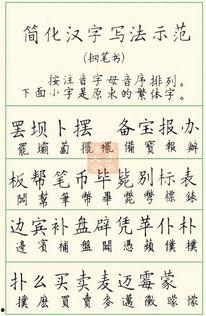 简化汉字写法示范
(钢笔书)
按注音字母音序排列。
下面小字是原来的繁体字。
罢坝卜摆 备宝报办
罷壩蔔擺襬 備寶報辦
板帮笔币毕毙别标表
闆幫筆幣畢斃彆標錶
边宾补盘辟凭苹仆朴
邊賓補盤闢憑蘋僕樸
扑么买卖麦迈霉蒙
撲麽買賣麥邁黴矇濛懞